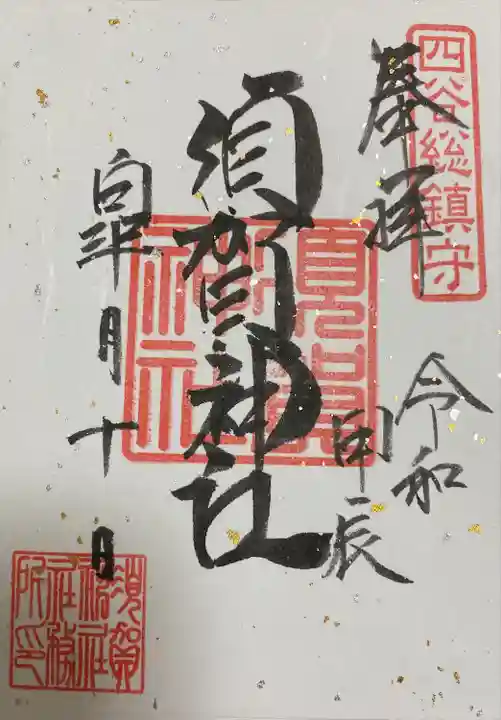 四谷総鎮守
奉拝
令和
甲辰
須賀神社
須賀神社
皐月十日
須賀神社社務所印